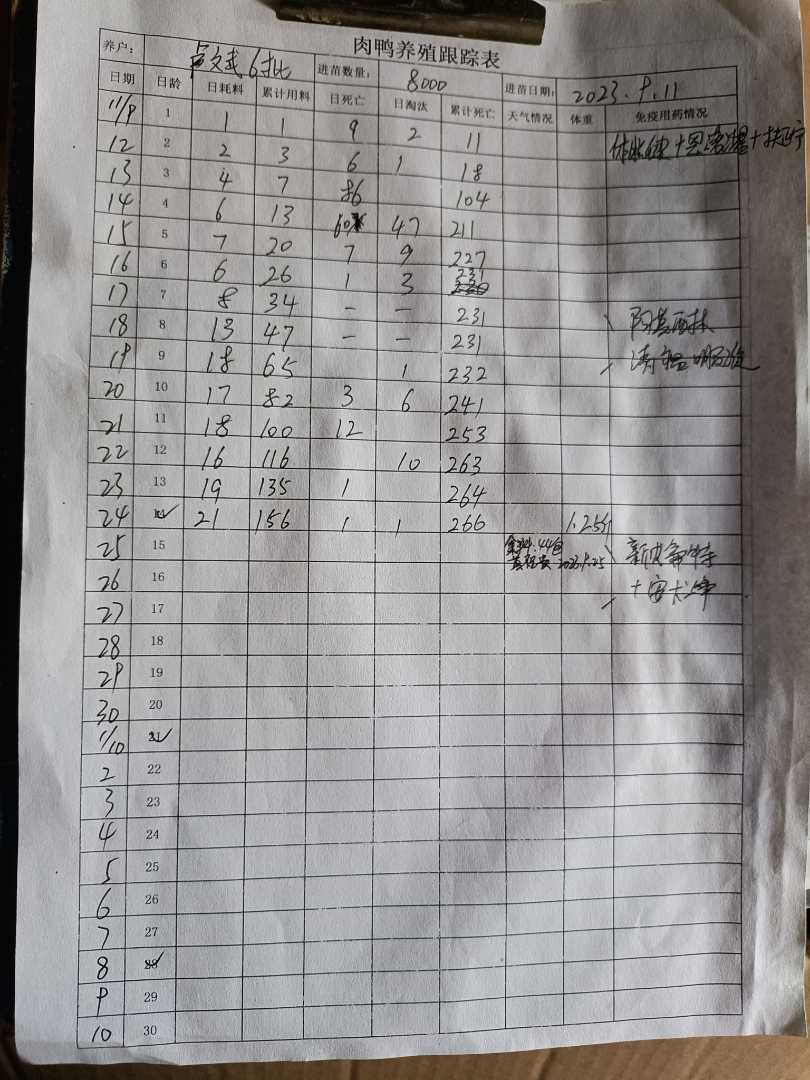 肉鸭养殖跟踪表
养户： 卢文武 6批 进苗数量： 8000 进苗日期： 2023.9.11
日期 日龄 日耗料 累计用料 日死亡 日淘汰 累计死亡 天气情况 体重 免疫用药情况
11/9 1 1 1 9 2 11
12 2 2 3 6 1 18
13 3 4 7 86 104
14 4 6 13 60 47 211
15 5 7 20 7 9 227
16 6 6 26 1 3 231
17 7 8 34 — — 231
18 8 13 47 — — 231 阿莫西林
19 9 18 65 1 232
20 10 17 82 3 6 241
21 11 18 100 12 253
22 12 16 116 10 263
23 13 19 135 1 264
24 14 21 156 1 1 266 1.25
25 15 44包 2023.9.25
26 16
27 17
28 18
29 19
30 20
1/10 21
2 22
3 23
4 24
5 25
6 26
7 27
8 28
9 29
10 30